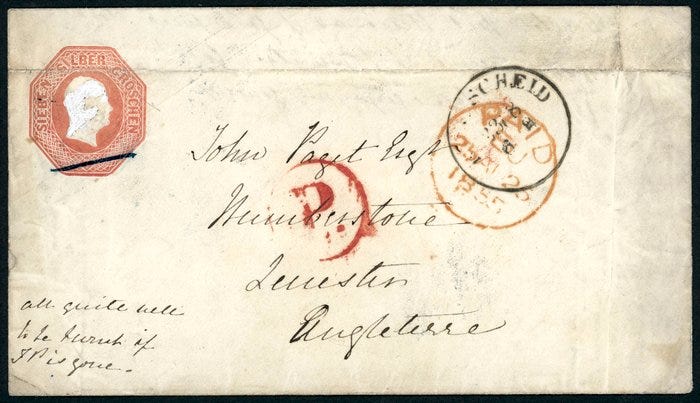 SIEBEN SILBER GROSCHEN
SCHEID
PAID
1855
P.
John Paget Esqr
Humberstone
Leicester
Angleterre
all quite well
to be burnt if
JP is gone.